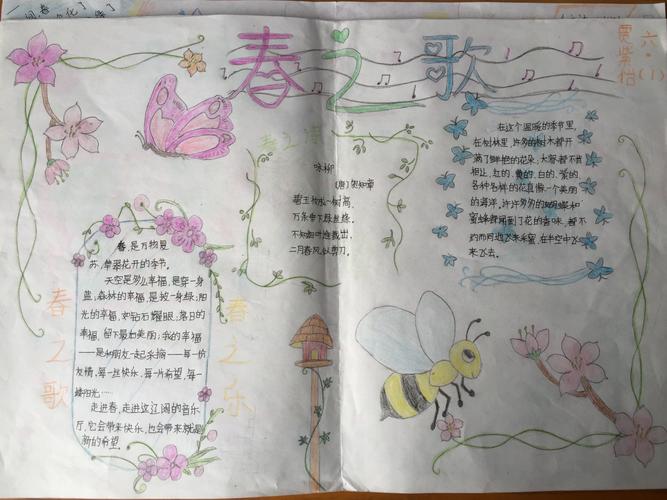 春之歌
六·(1)
春之诗
咏柳
(唐)贺知章
碧玉妆成一树高,
万条垂下绿丝绦。
不知细叶谁裁出,
二月春风似剪刀。
在这个温暖的季节里,
在树林里,许多的树木都开
满了鲜艳的花朵,大家都不肯
相让,红的、黄的、白的、紫的,
各种各样的花真像一个美丽
的海洋,许许多多的蝴蝶和
蜜蜂都闻到了花的香味,都不
约而同地飞来采蜜,在半空中飞
来飞去。
春,是万物复
苏、草翠花开的季节。
天空是那么幸福,是穿一身
蓝;森林的幸福,是披一身绿;阳
光的幸福,如钻石耀眼;落日的
幸福,留下最如美丽;我的幸福
——是和朋友一起采摘——每一份
友情,每一丝快乐,每一片希望,每一
缕阳光……
走进春,走进这辽阔的音乐
厅,它会带来快乐,也会带来就是
新的希望。
春之歌
春之乐